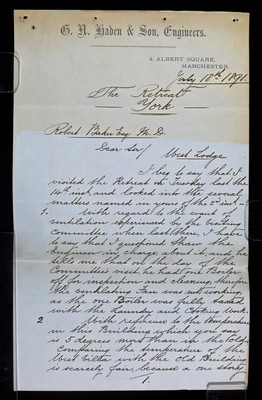 G. N. Haden & Son, Engineers.
4, ALBERT SQUARE,
MANCHESTER,
July 18th 1891.
The Retreat
York
Robert Baker Esq M.D.
Dear Sir/
West Lodge
I beg to say that I
visited the Retreat on Tuesday last the
14th inst, and looked into the several
matters named in yours of the 2nd inst -
1. With regard to the want of
ventilation experienced by the Visiting
Committee when last there, I have
to say that I questioned the
Engineer in charge about it, and he
tells me that on the day of the
Committee's visit he had one Boiler
off for inspection and cleaning, therefore
the Ventilating Fan was not working
as the one Boiler was fully taxed
with the Laundry and Cooking work.
2 With reference to the temperature
in this Building which you say
is 5 degrees more than in the Old,
Comparing the temperature of the
West Villa with the Old Building
is scarcely fair, because a one story
1.